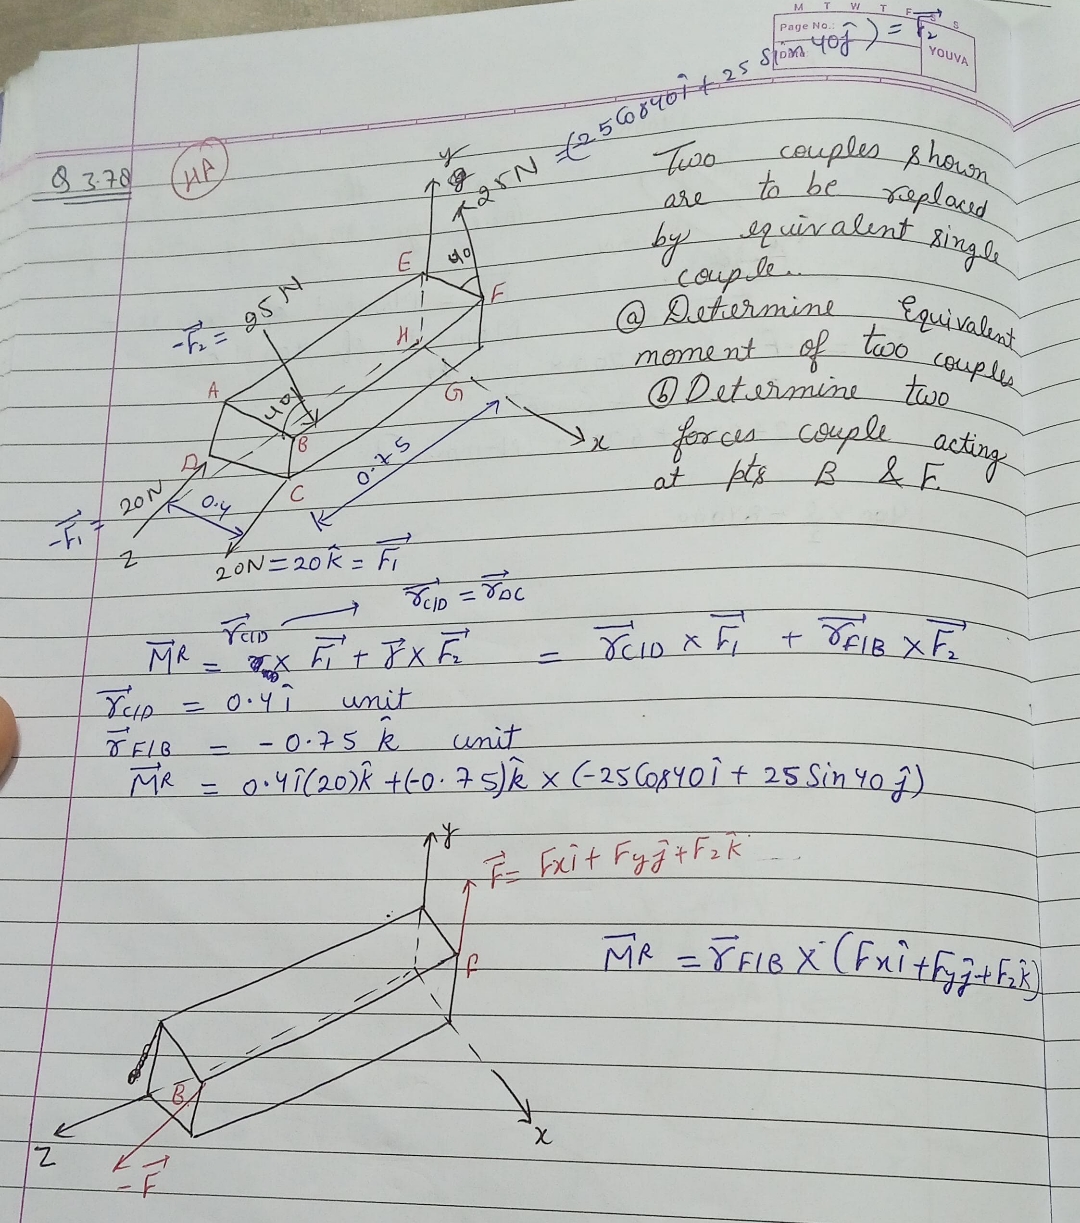 M T W T F S S
Page No.:
YOUVA
= (25 Cos40î + 25 Sin 40ĵ) = F₂
Q 3.78
HA
Two couples shown
are to be replaced
by equivalent single
couple.
(a) Determine Equivalent
moment of two couples
(b) Determine two
forces couple acting
at pts B & F.
y
25N
E
40
F
-F₂ = 25 N
H
A
G
40
B
x
D
0.75
C
20N
0.4
-F₁ =
Z
20N = 20k̂ = F₁
r⃗C/D = r⃗DC
r⃗C/D
M⃗R = r × F⃗₁ + r⃗ × F⃗₂ = r⃗C/D × F⃗₁ + r⃗F/B × F⃗₂
r⃗C/D = 0.4 î unit
r⃗F/B = - 0.75 k̂ unit
M⃗R = 0.4î(20)k̂ + (-0.75)k̂ × (-25 Cos40 î + 25 Sin 40 ĵ)
y
F⃗ = Fxî + Fyĵ + Fzk̂
F
M⃗R = r⃗F/B × (Fxî + Fyĵ + Fzk̂)
B
Z
x
-F⃗